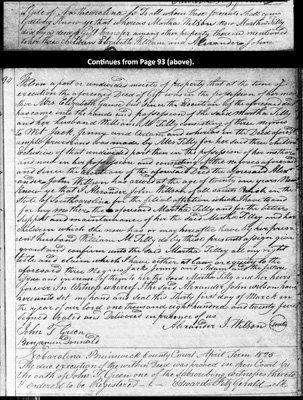 State of South Carolina } To all whom these presents shall come
Greeting Know ye that whereas Martha Wilson now Martha Tilly
did by a deed of gift transfer among other property therein mentioned
to her three children Elizabeth William and Alexander John
Continues from Page 93 (above).
Wilson a part or undivided moiety of property that at the time of
execution the aforesaid Deed of Gift was in the possession of her
Mrs Elizabeth but since the execution of the aforesaid
has come into the hands and possession of the said Martha Tilly
and her husband William M Tilly consisting of three negroes
to Wit Jack Jenny and Adam and whereas in the Deed aforesaid
ample provision was made by Mrs Tilly for her said three children
exclusive of the undivided part then in the possession of her mother
and now in her possession and consisting of the negroes aforesaid
and since the execution of the aforesaid Deed the aforesaid
Alexander John Wilson has arrived at the age of twenty one years Now
know ye that I Alexander John Wilson of all saints Parish in the
State of South Carolina for the filial affection which I have and
for my mother the aforesaid Martha Tilly and for the better
support and maintainance of her the said Martha Tilly and her
children which she now has or may hereafter have by her present
husband William M Tilly do by these presents assign
grant and confirm unto the said Martha Tilly all my right
title and claim which I have either at Law or equity to the
aforesaid three negroes Jack Jenny and Adam and the future
issue and increase of them to her the said Martha Tilly and her heirs
forever In Witness whereof I the said Alexander John Wilson have
hereunto set my hand and seal this Thirty first day of March in
the year of our Lord one thousand eight hundred and twenty five
Signed Sealed and Delivered in presence of us
John T Green Alexander J Wilson (Seal)
Benjamin Gornald
No Carolina Brunswick County Court April Term 1825
The due execution of the within Deed was proved in open Court by
the oath of John T Green one of the subscribing witnesses thereto
& ordered to be Registered